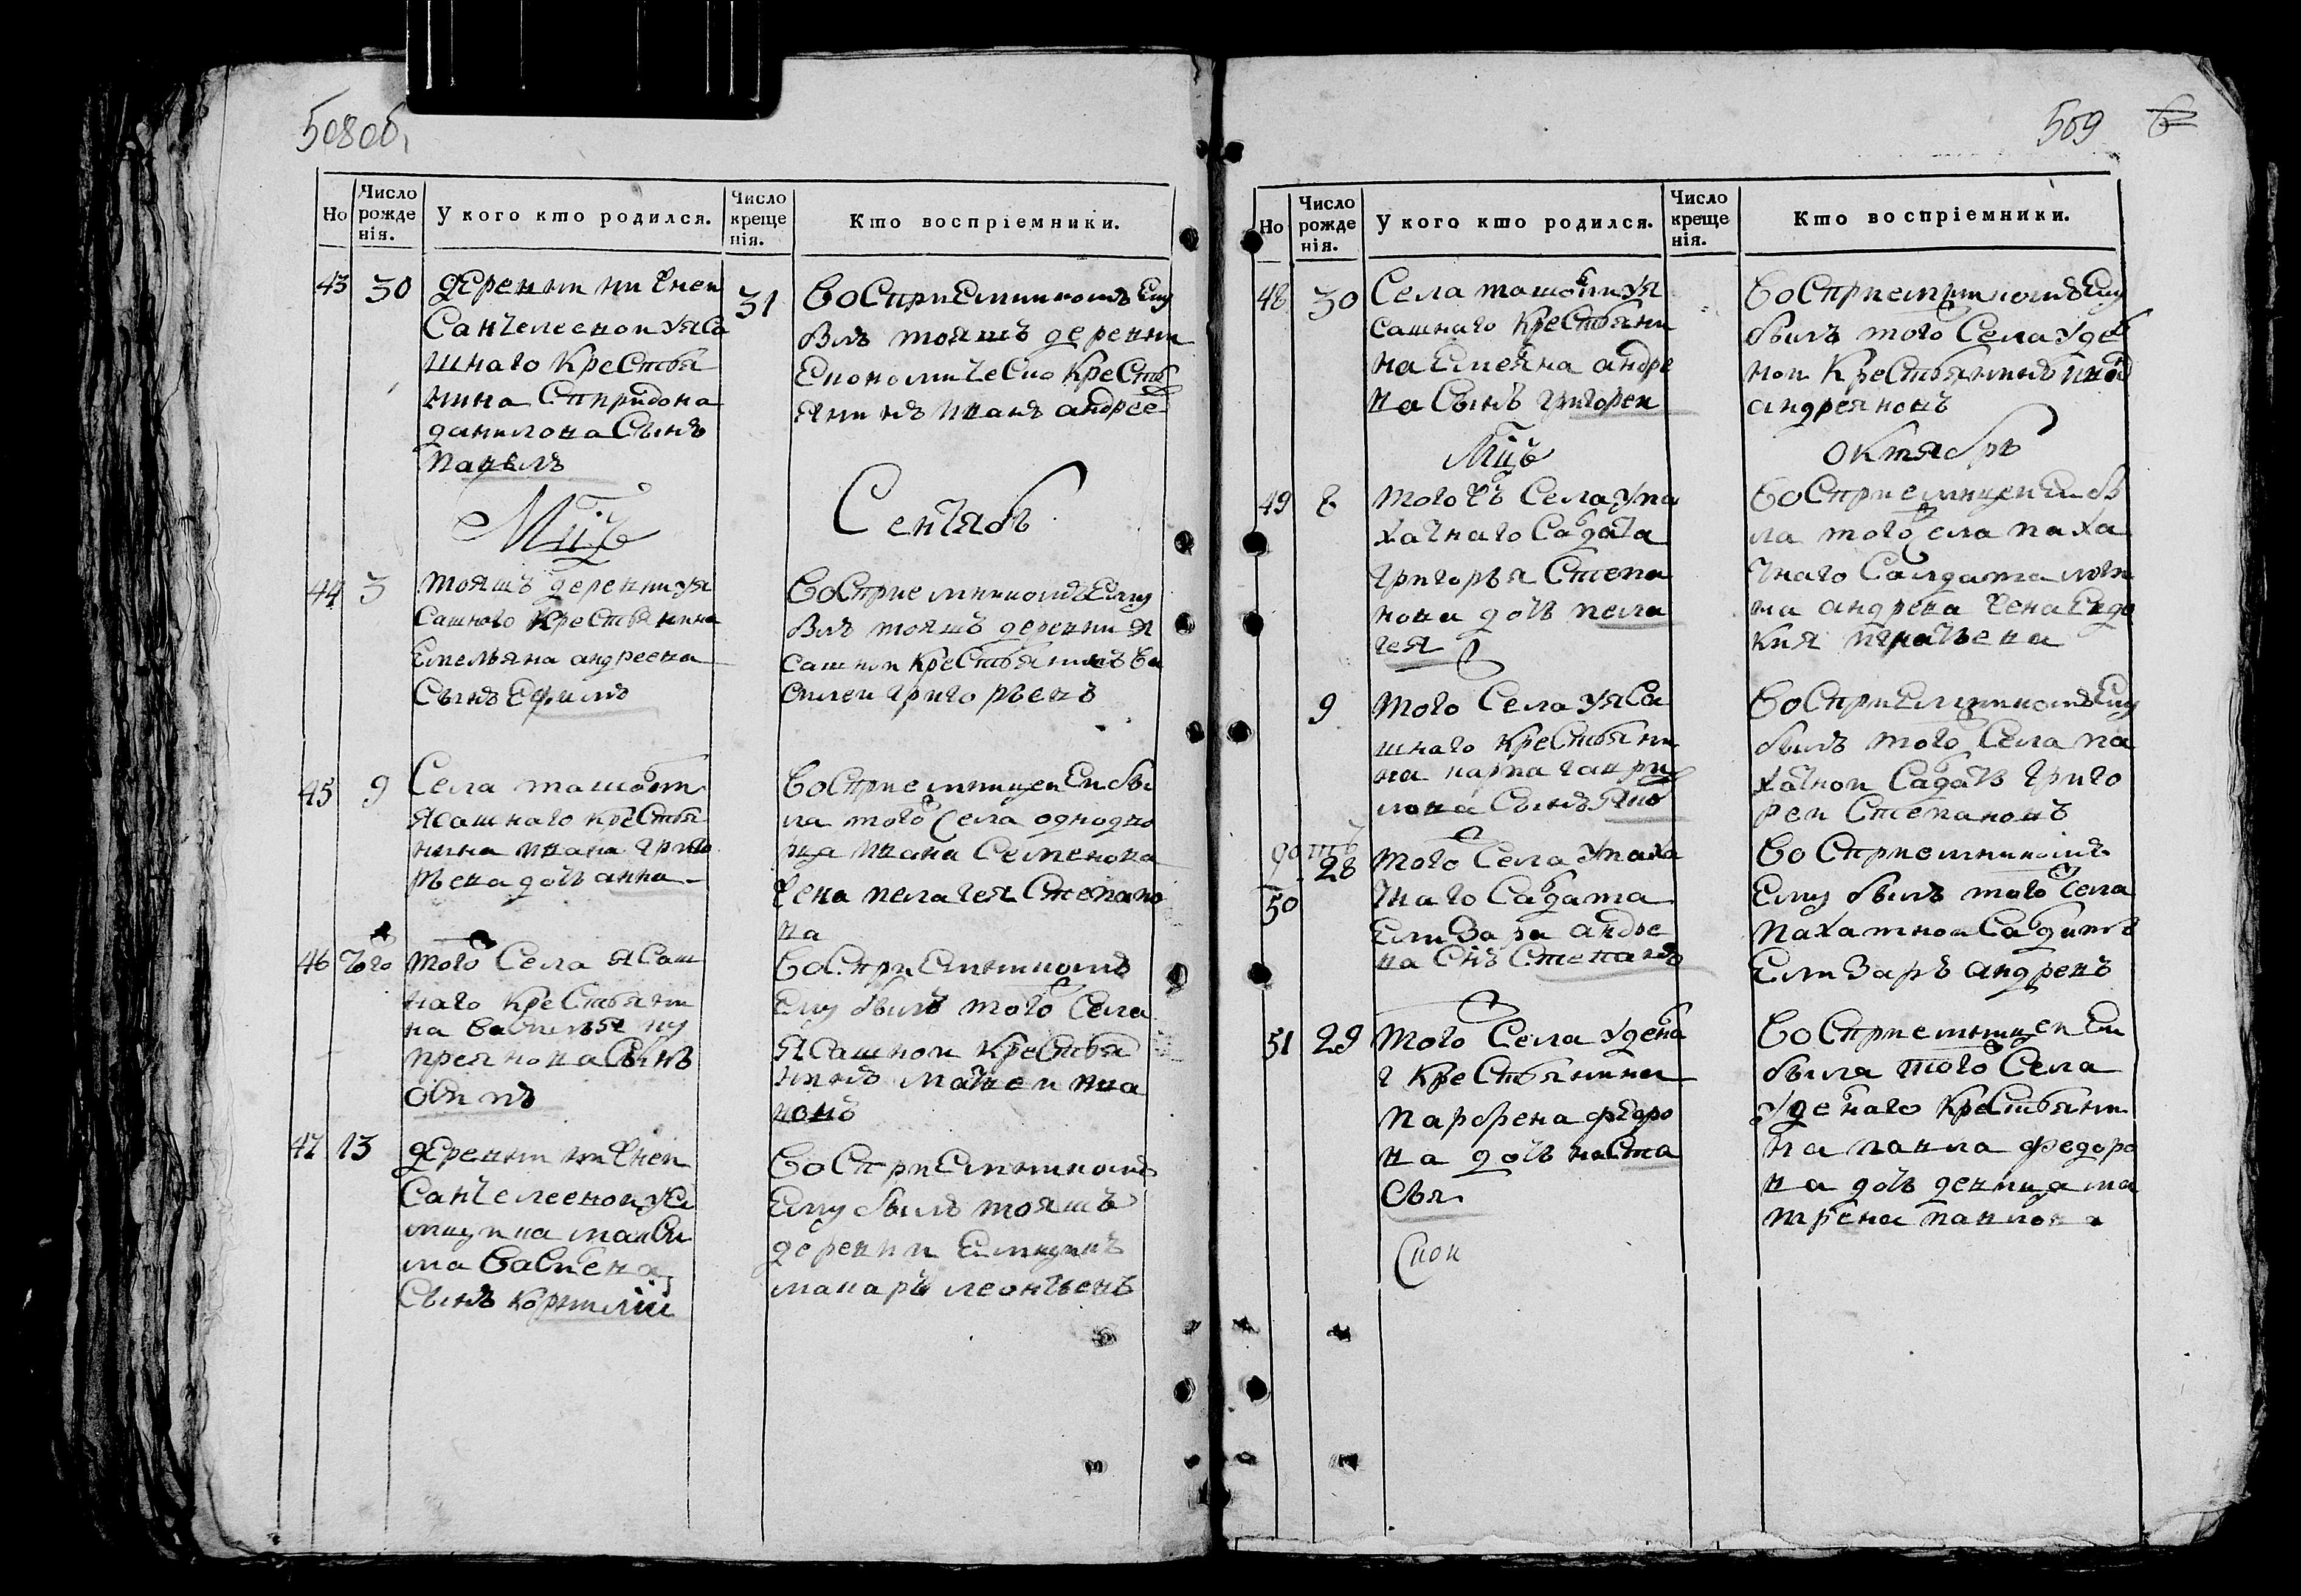 508 об.
Но
Число рожденія.
У кого кто родился.
Число крещенія.
Кто воспріемники.
43
30
деревни
Санчелеевой у яса
шнаго Крестья
нина Спиридона
данилова Сынъ
павелъ
31
Воспри Емникомъ Ему
былъ тояжъ деревни
Економическо Кресть
янинъ иванъ андрее
Мцъ
Сентяб
44
3
тояшъ деревни у я
сашного Крестьянина
Емельяна андреева
Сынъ Ефимъ
Восприемникомъ Ему
былъ тояшъ деревни я
сашнои Крестьянинъ ва
силеи григорьевъ
45
9
Села ташолки
ясашнаго Крестья
нина ивана григо
рьева дочь анна
Восприемницеи Еи бы
ла того Села однодво
рца ивана Семенова
жена пелагея Степано
ва
46
того
того Села ясаш
наго Крестьяни
на василья ку
преянова Сынъ
осипъ
Воспри Емникомъ
Ему былъ того Села
ясашнои Крестья
нинъ матвеи ива
новъ
47
13
деревни
Санчелеевой у Я
мщика макси
ма васильева
Сынъ корнилии
Воспри Емникомъ
Ему былъ тояшъ
деревни Емщикъ
макаръ леонтьевъ
509
Но
Число рожденія.
У кого кто родился.
Число крещенія.
Кто воспріемники.
48
30
Села ташолки у я
сашнаго Крестьяни
на Емеяна андре
ва Сынъ григореи
Восприемникомъ Ему
былъ того Села удел
нои Крестьянинъ
андреяновъ
Мцъ
октябръ
49
8
того жъ Села у па
хатнаго Салдата
григорья Степа
нова дочь пела
гея
Восприемницеи Еи бы
ла того села паха
тнаго Салдата
андреева жена Евдо
кия игнатьева
9
того Села у яса
шнаго Крестьяни
на карпа гаври
лова Сынъ яко
Воспри Емникомъ Ему
былъ того Села па
хатнои Салдатъ григо
реи Степановъ
50
28
того Села у паха
тнаго Салдата
Елизара андре
ва Снъ Степанъ
Восприемникомъ
Ему былъ того Села
пахатнои Салдатъ
Елизаръ андревъ
51
29
того Села у делна
г Крестьянина
парфена федоро
ва дочь наста
сья
Восприемницеи Еи
была того Села
уделнаго Крестьяни
на павла федоро
ва дочь девица ма
трена павлова